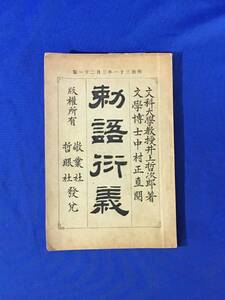 明治三十一年三月二十一版
文科大學教授井上哲次郎著
文學博士中村正直閲
勅語衍義
版權所有
敬業社
哲眼社發兌